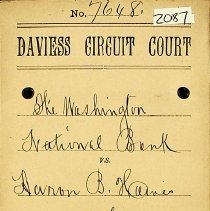 No. 7648.
2087
DAVIESS CIRCUIT COURT
The Washington
National Bank
vs.
Aaron B. Hawes